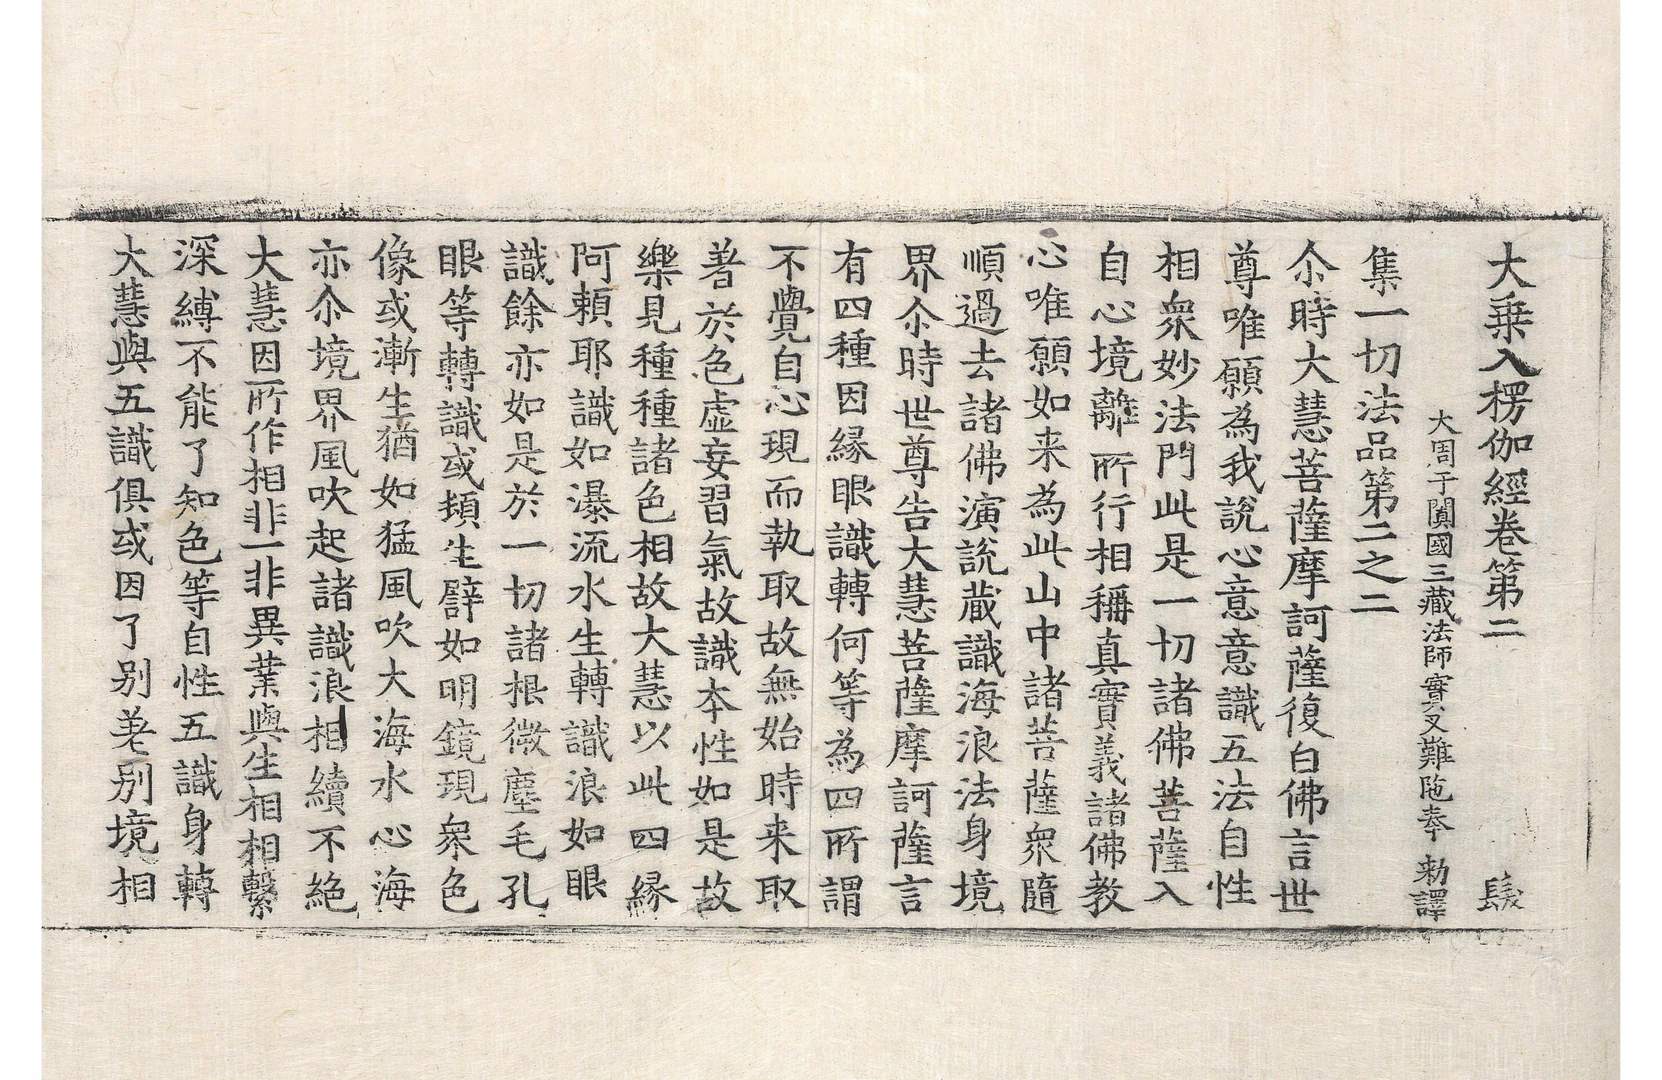 大乗入楞伽經卷第二 髮
大周于闐國三藏法師實叉難陁奉 勑譯
集一切法品第二之二
尒時大慧菩薩摩訶薩復白佛言世
尊唯願為我說心意意識五法自性
相衆妙法門此是一切諸佛菩薩入
自心境離所行相稱真實義諸佛教
心唯願如来為此山中諸菩薩衆隨
順過去諸佛演說藏識海浪法身境
界尒時世尊告大慧菩薩摩訶薩言
有四種因緣眼識轉何等為四所謂
不覺自心現而執取故無始時来取
著於色虛妄習氣故識本性如是故
樂見種種諸色相故大慧以此四緣
阿賴耶識如瀑流水生轉識浪如眼
識餘亦如是於一切諸根微塵毛孔
眼等轉識或頓生譬如明鏡現衆色
像或漸生猶如猛風吹大海水心海
亦尒境界風吹起諸識浪相續不絶
大慧因所作相非一非異業與生相相繫
深縛不能了知色等自性五識身轉
大慧與五識俱或因了別差別境相